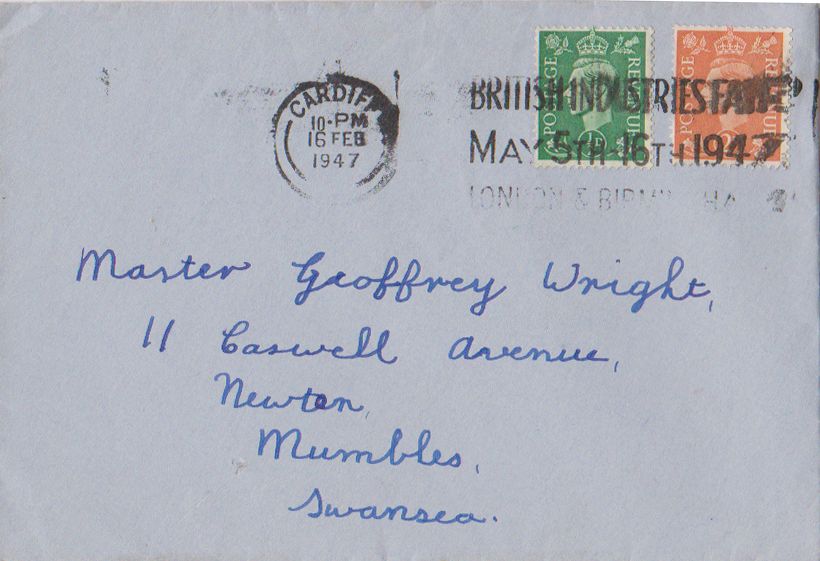 POSTAGE REVENUE
POSTAGE REVENUE
CARDIFF
10-PM
16 FEB
1947
BRITISH INDUSTRIES FAIR
MAY 5TH-16TH 1947
LONDON & BIRMINGHAM
Master Geoffrey Wright,
11 Caswell Avenue,
Newton,
Mumbles,
Swansea.